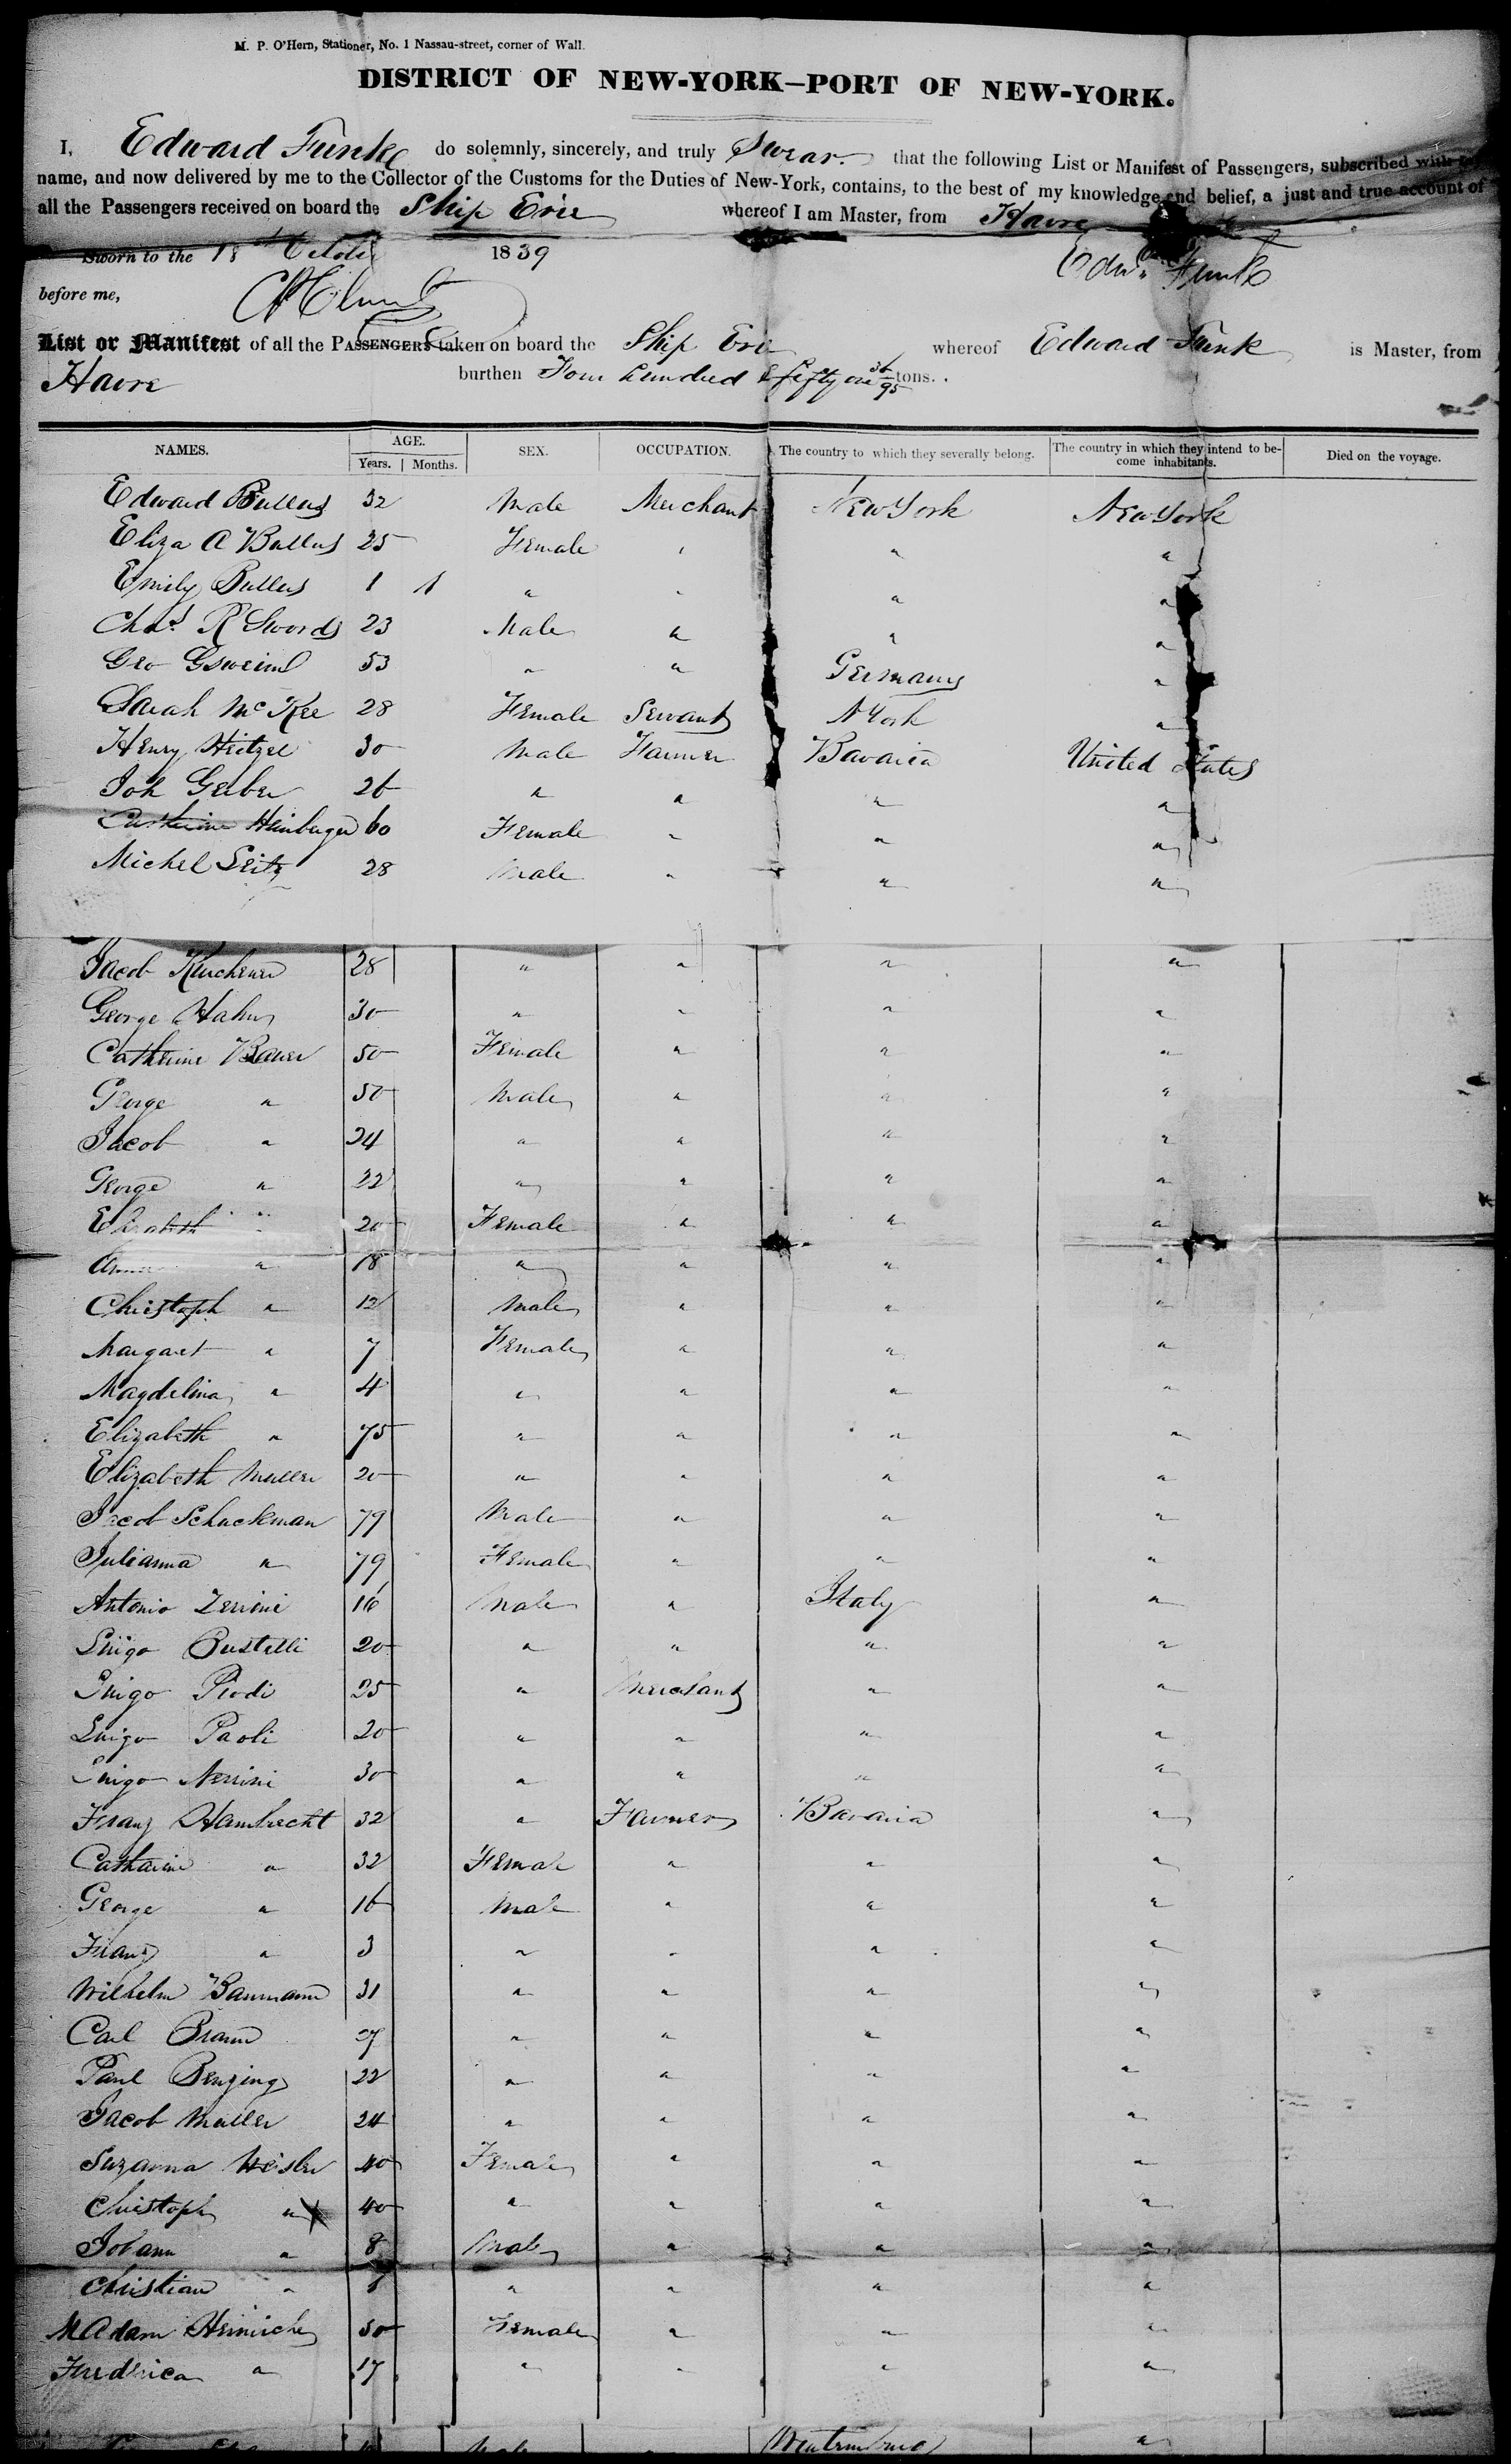 M. P. O'Hern, Stationer, No. 1 Nassau-street, corner of Wall.
DISTRICT OF NEW-YORK—PORT OF NEW-YORK.
I, Edward Funk do solemnly, sincerely, and truly Swear that the following List or Manifest of Passengers, subscribed with my
name, and now delivered by me to the Collector of the Customs for the Duties of New-York, contains, to the best of my knowledge and belief, a just and true account of
all the Passengers received on board the Ship Erie whereof I am Master, from Havre
Sworn to the 18 October 1839
Edwd Funk
before me,
List or Manifest of all the PASSENGERS taken on board the Ship Erie whereof Edward Funk is Master, from
Havre burthen Four hundred & fifty one 36/95 tons.
NAMES. AGE. SEX. OCCUPATION. The country to which they severally belong. The country in which they intend to be- Died on the voyage.
Years. Months. come inhabitants.
Edward Bullus 32 Male Merchant New York New York
Eliza A Bullus 25 Female " " "
Emily Bullus 1 " " " "
Chas. R Swords 23 Male " " "
Geo 53 " " Germany "
Sarah McKee 28 Female Servant N York "
Henry Heitzel 30 Male Farmer Bavaria United States
Joh Gerber 26 " " " "
Catherine Heinberger 60 Female " " "
Michel Seitz 28 Male " " "
Jacob 28 " " " "
George Hahn 30 " " " "
Catherine Bauer 50 Female " " "
George " 50 Male " " "
Jacob " 24 " " " "
George " 22 " " " "
Elizabeth " 20 Female " " "
Anna " 18 " " " "
Christoph " 12 Male " " "
Margaret " 7 Female " " "
Magdelina " 4 " " " "
Elizabeth " 75 " " " "
Elizabeth Muller 20 " " " "
Jacob Schuckman 79 Male " " "
Julianna " 79 Female " " "
Antonio Zerrini 16 Male " Italy "
Luigo Bustelli 20 " " " "
Luigo Piodi 25 " Merchant " "
Luigo Paoli 20 " " " "
Luigo Nerrini 30 " " " "
Franz Hambrecht 32 " Farmer Bavaria "
Catharine " 32 Female " " "
George " 16 Male " " "
Franz " 3 " " " "
Wilhelm Baumann 31 " " " "
Carl Braun 27 " " " "
Paul Benzing 22 " " " "
Jacob Muller 24 " " " "
Suzanna Weisler 40 Female " " "
Christoph " 40 " " " "
Johann " 8 Male " " "
Christian " " " " "
MAdam Heinriche 50 Female " " "
Frederica " 17 " " " "
Male "